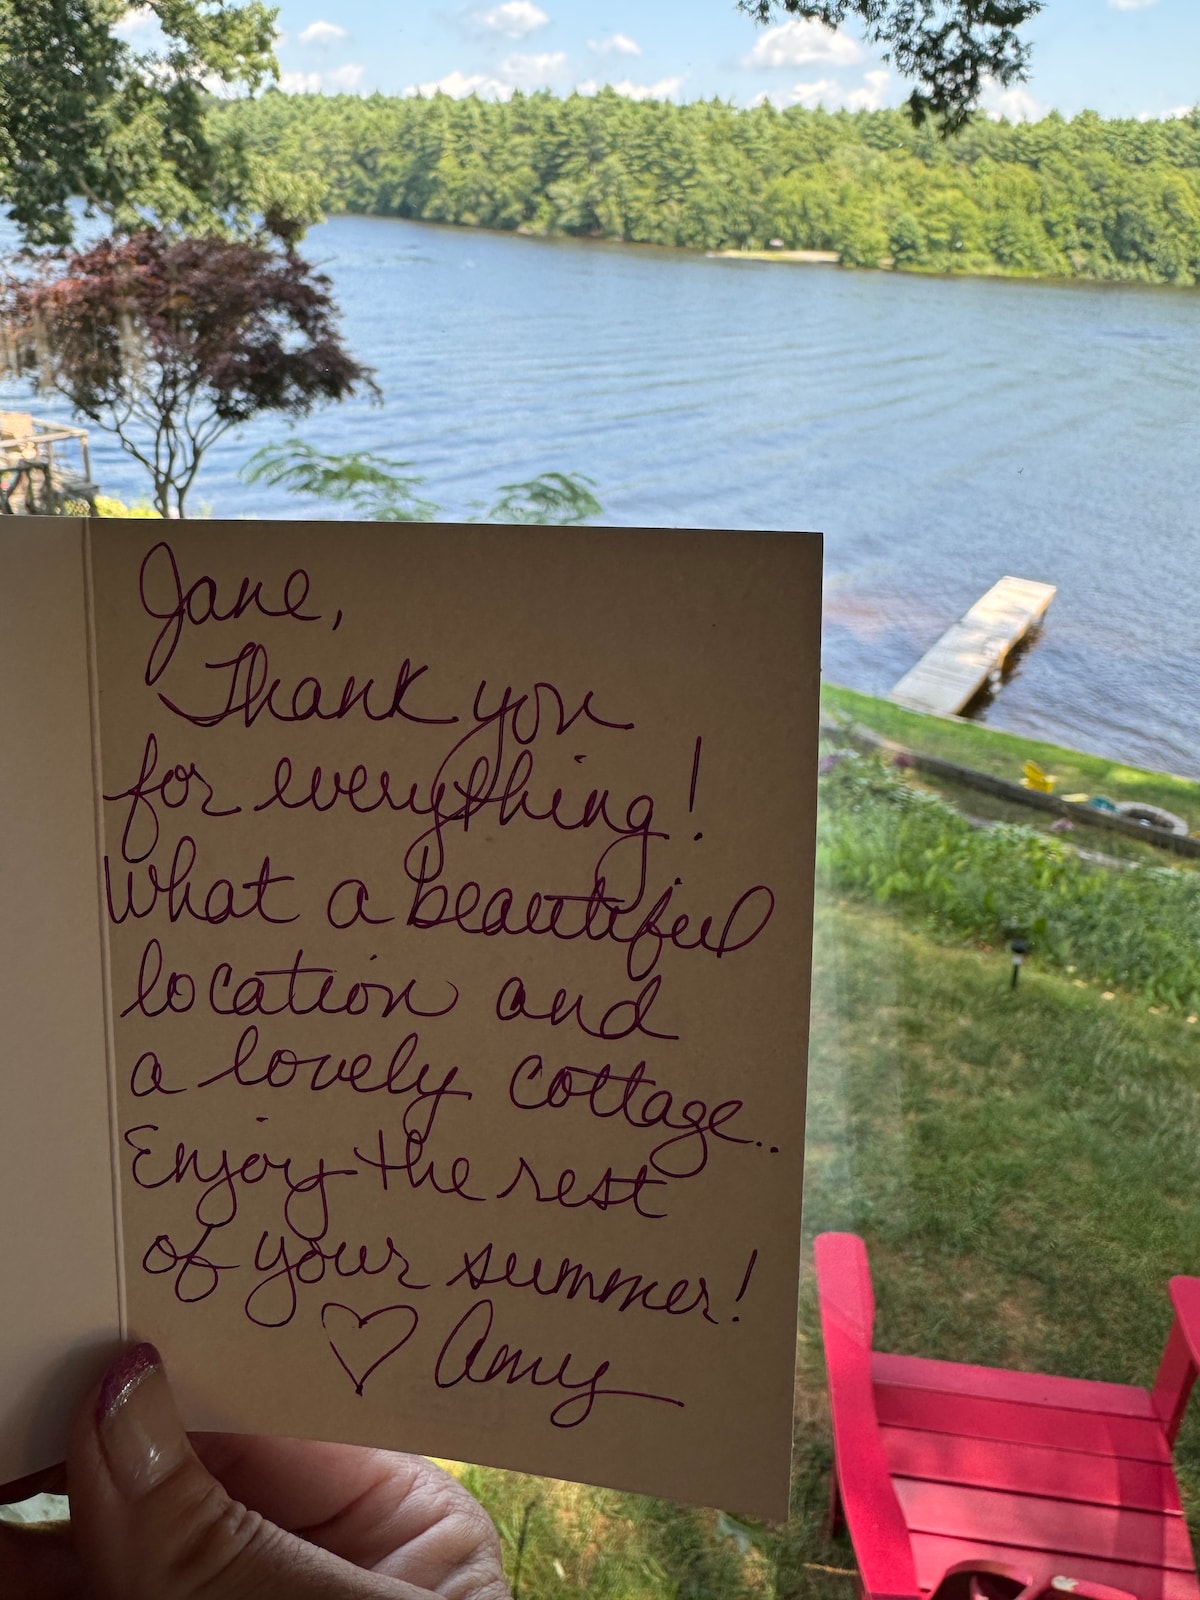 Jane,
Thank you
for everything!
What a beautiful
location and
a lovely cottage..
Enjoy the rest
of your summer!
♡ Amy